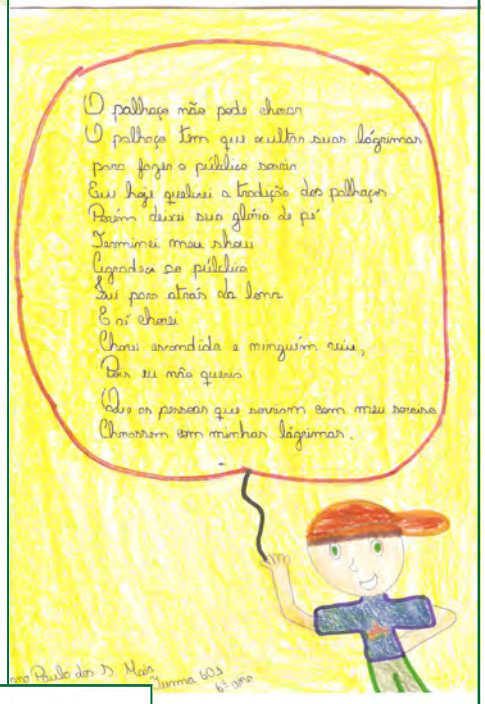 O palhaço não pode chorar
O palhaço tem que ocultar suas lágrimas
para fazer o público sorrir
Eu hoje quebrei a tradição dos palhaços
Porém deixei sua glória de pé
Terminei meu show
Agradeci ao público
Fui para atrás da lona
E aí chorei
Chorei escondido e ninguém viu,
Pois eu não queria
Que as pessoas que sorriam com meu sorriso
Chorassem com minhas lágrimas.
Paulo dos S. Maia
Turma 603
6º ano